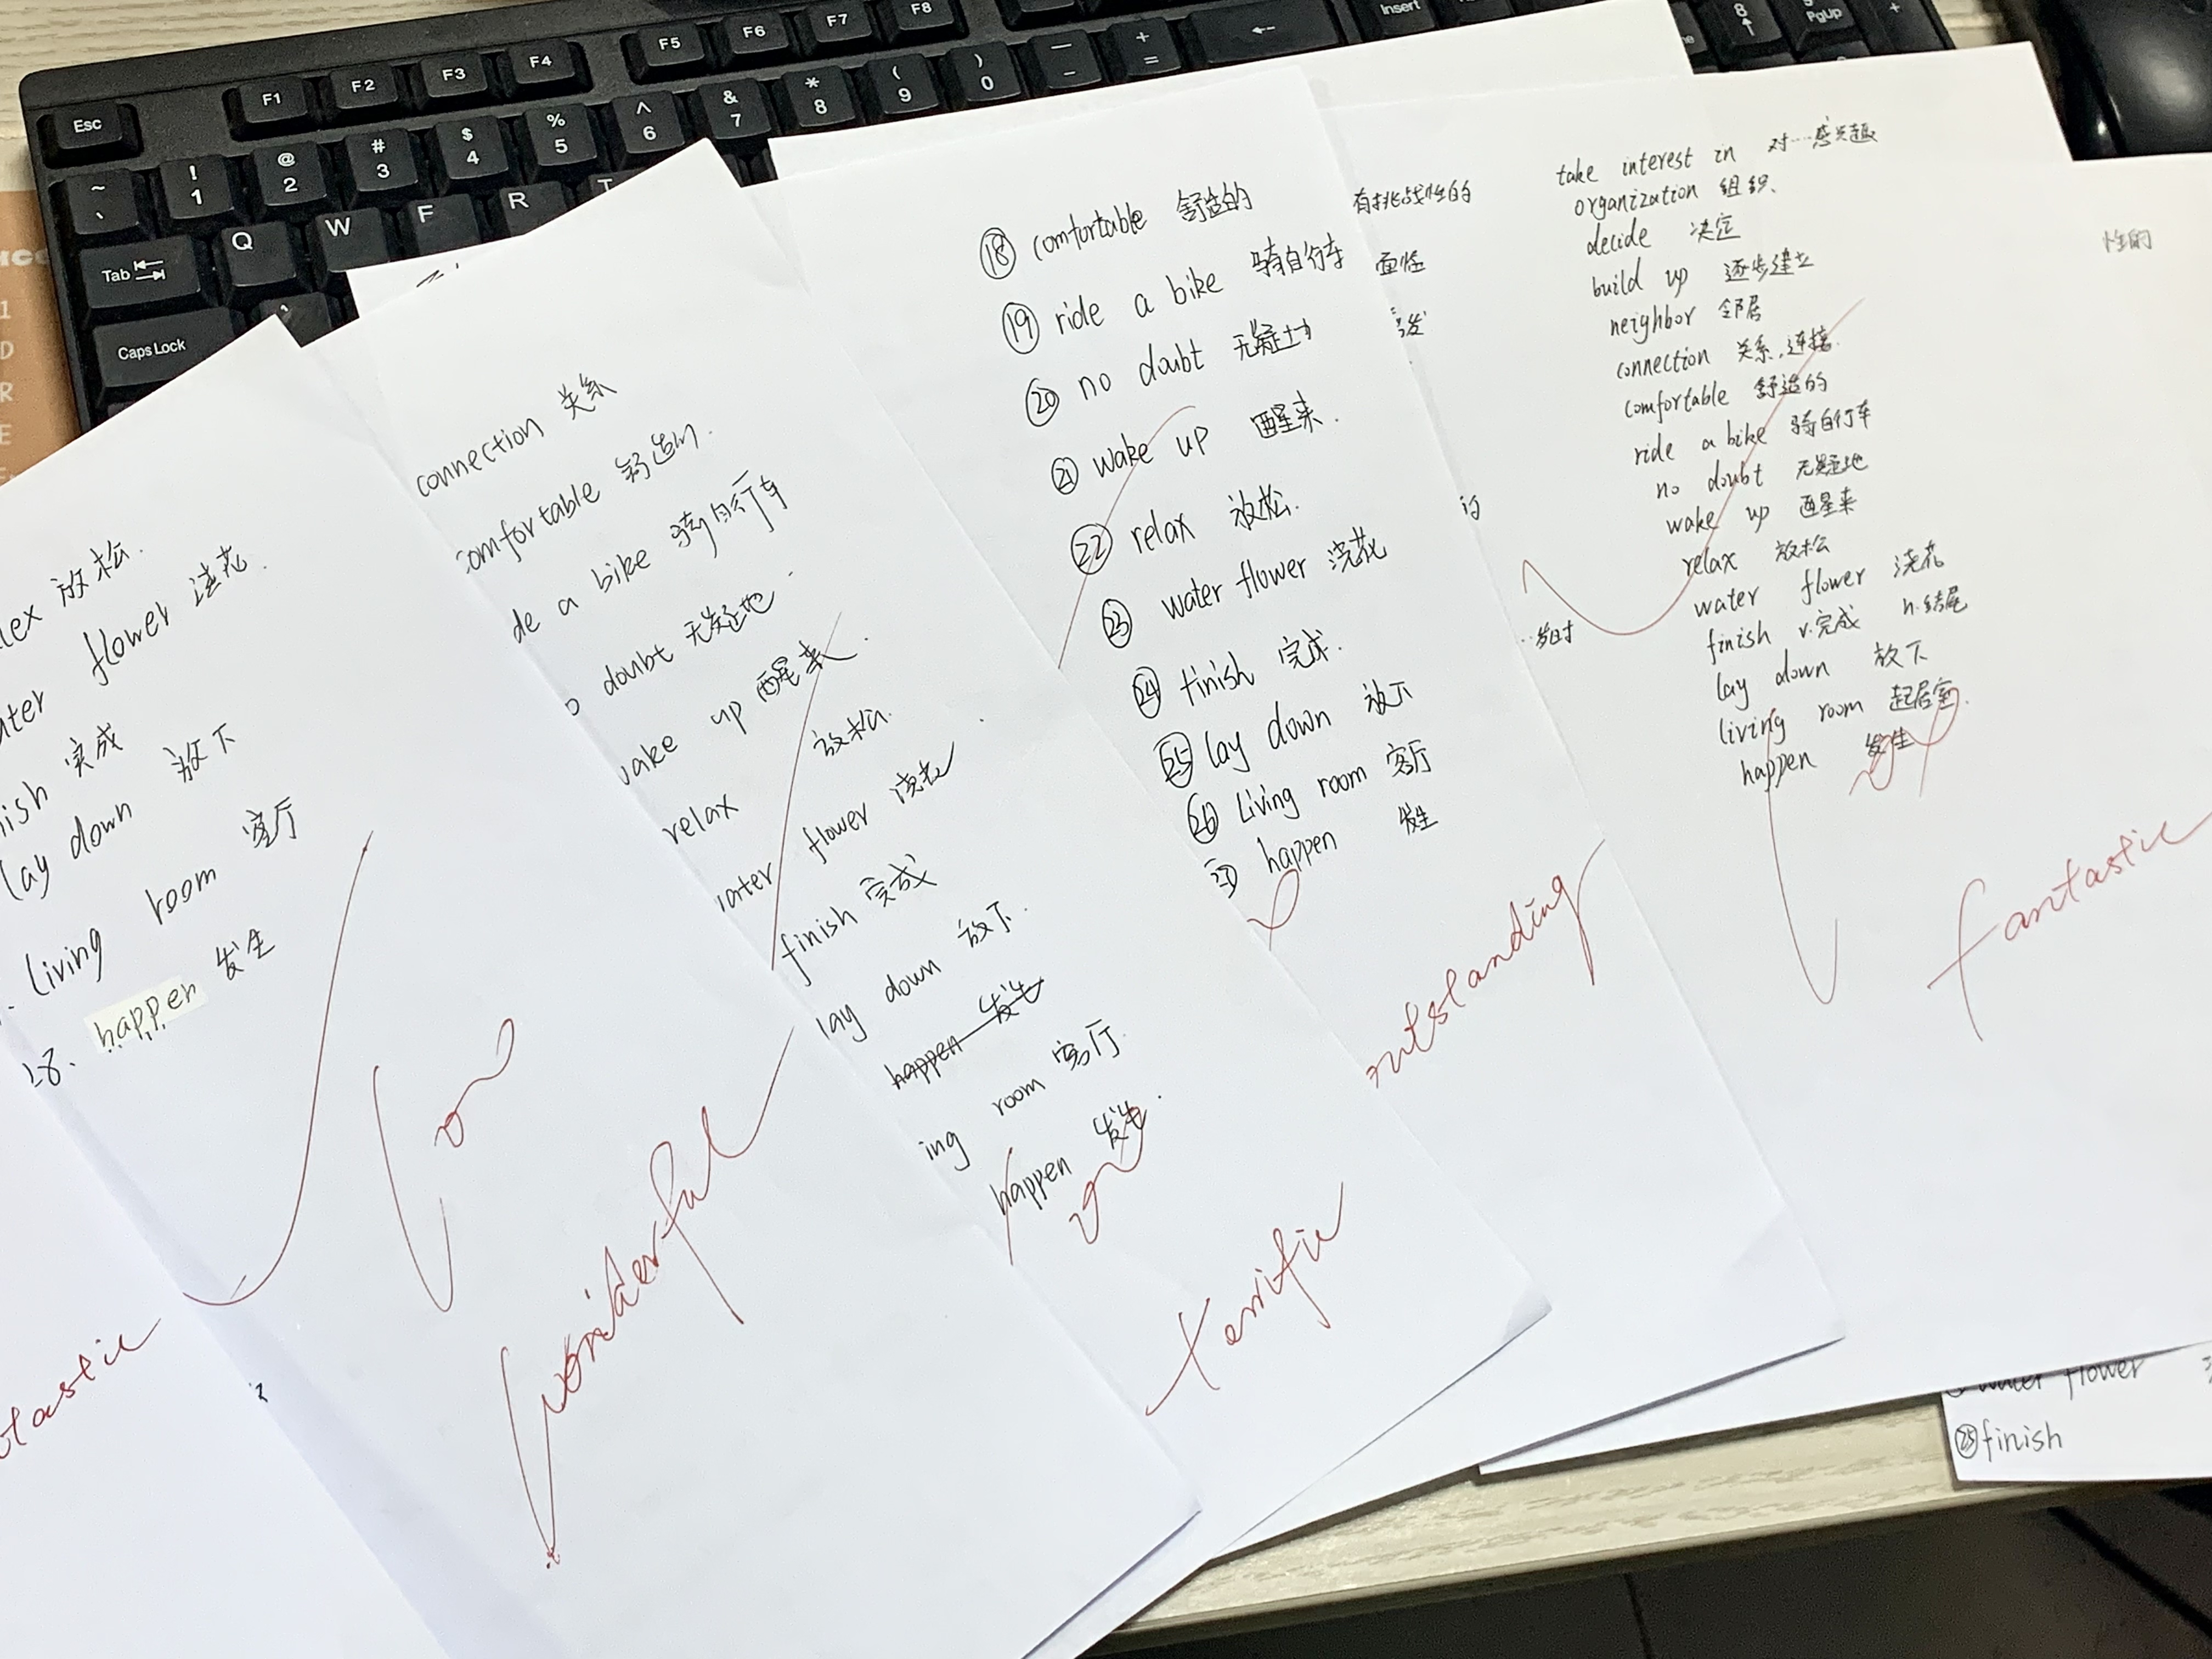 Esc F1 F2 F3 F4 F5 F6 F7 F8
Insert
8 PgUp +
~ ! 1 @ 2 # 3 $ 4 % 5 ^ 6 & 7 * 8 ( 9 ) 0 — - + =
Tab Q W F R T
Caps Lock
放松.
flower 浇花.
完成
lay down 放下
living room 客厅
28. happen 发生
100
fantastic
connection 关系
comfortable 舒适的.
a bike 骑自行车
doubt 无疑地.
wake up 醒来.
relax 放松.
water flower 浇花
finish 完成
lay down 放下.
happen 发生
room 客厅.
happen 发生.
wonderful
⑱ comfortable 舒适的
⑲ ride a bike 骑自行车
⑳ no doubt 无疑地
㉑ wake up 醒来.
㉒ relax 放松.
㉓ water flower 浇花
㉔ finish 完成.
㉕ lay down 放下
㉖ Living room 客厅
㉗ happen 发生
terrific
有挑战性的
outstanding
take interest in 对…感兴趣
organization 组织.
decide 决定
build up 逐步建立
neighbor 邻居
connection 关系,连接.
comfortable 舒适的
ride a bike 骑自行车
no doubt 无疑地
wake up 醒来
relax 放松
water flower 浇花
finish v.完成 n.结尾
lay down 放下
living room 起居室.
happen 发生
fantastic
性的
water flower
㉕finish